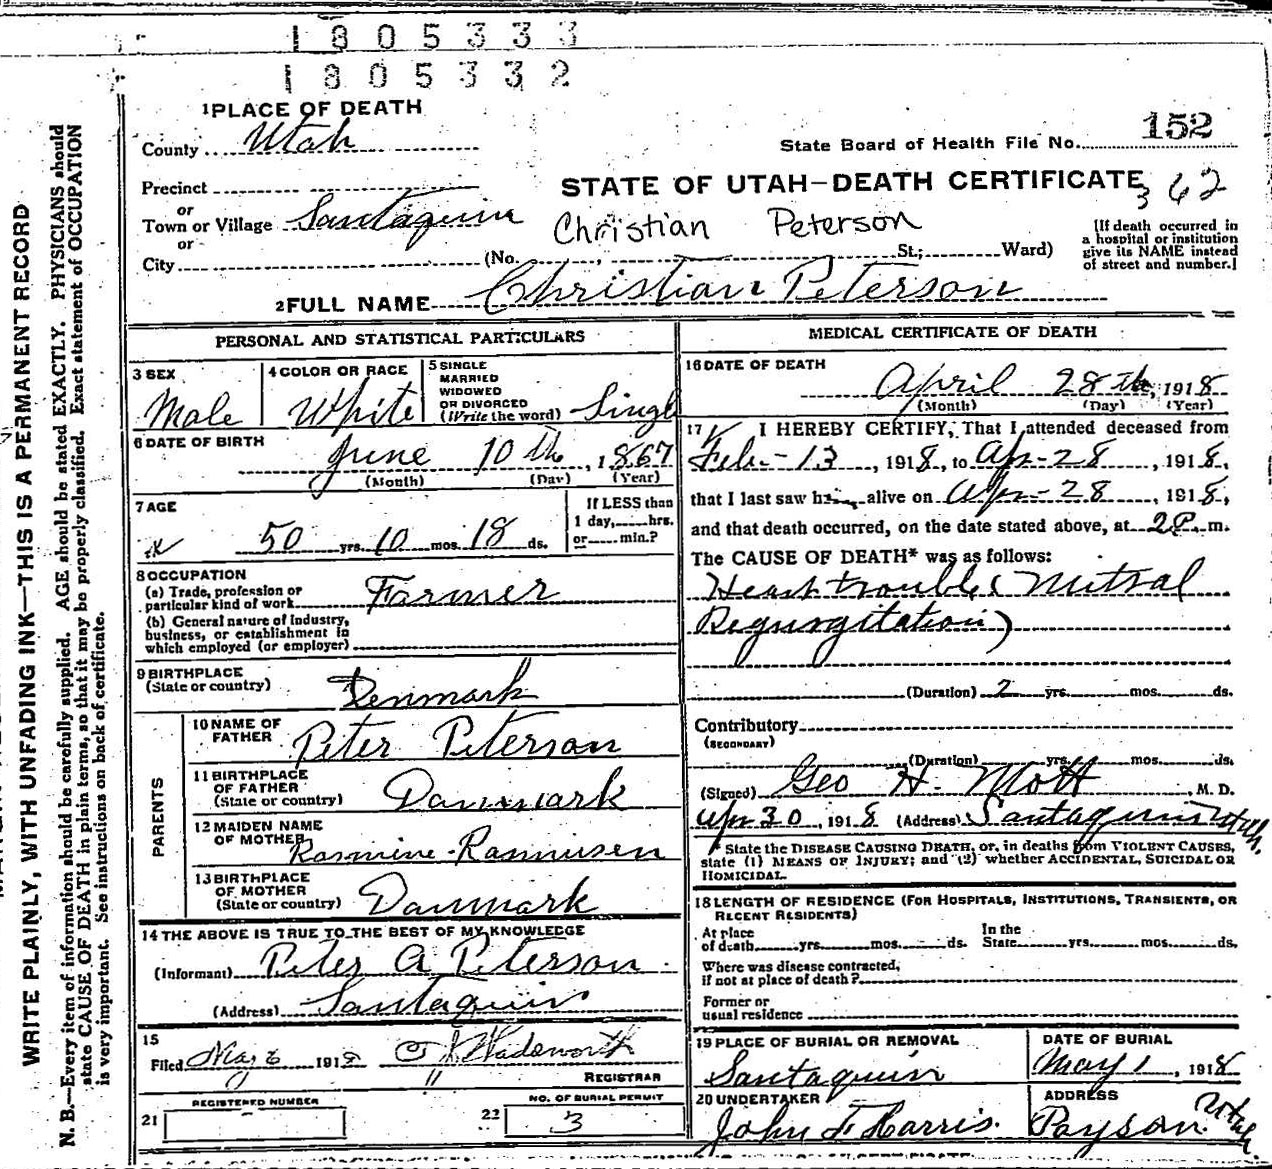 1805333
1805332
1 PLACE OF DEATH
County Utah
State Board of Health File No. 152
Precinct
or
Town or Village Santaquin
or
City
STATE OF UTAH—DEATH CERTIFICATE
362
Christian Peterson
(No. , St.; Ward)
[If death occurred in
a hospital or institution
give its NAME instead
of street and number.]
2 FULL NAME Christian Peterson
PERSONAL AND STATISTICAL PARTICULARS
3 SEX
Male
4 COLOR OR RACE
White
5 SINGLE
MARRIED
WIDOWED
OR DIVORCED
(Write the word) Single
6 DATE OF BIRTH
June 10th, 1867
(Month) (Day) (Year)
7 AGE
50 yrs. 10 mos. 18 ds.
If LESS than
1 day, hrs.
or min.?
8 OCCUPATION
(a) Trade, profession or
particular kind of work Farmer
(b) General nature of Industry,
business, or establishment in
which employed (or employer)
9 BIRTHPLACE
(State or country) Denmark
PARENTS
10 NAME OF
FATHER Peter Peterson
11 BIRTHPLACE
OF FATHER
(State or country) Danmark
12 MAIDEN NAME
OF MOTHER Rasmine Rasmusen
13 BIRTHPLACE
OF MOTHER
(State or country) Danmark
14 THE ABOVE IS TRUE TO THE BEST OF MY KNOWLEDGE
(Informant) Peter A Peterson
(Address) Santaquin
15
Filed May 6 1918 Wadsworth
REGISTRAR
REGISTERED NUMBER
21
NO. OF BURIAL PERMIT
22 3
MEDICAL CERTIFICATE OF DEATH
16 DATE OF DEATH
April 28th, 1918
(Month) (Day) (Year)
17 I HEREBY CERTIFY, That I attended deceased from
Feb-13, 1918, to Ap-28, 1918,
that I last saw him alive on Apr-28, 1918,
and that death occurred, on the date stated above, at 2P. m.
The CAUSE OF DEATH* was as follows:
Heart trouble (Mitral
Regurgitation)
(Duration) 2 yrs. mos. ds.
Contributory
(SECONDARY)
(Duration) yrs. mos. ds.
(Signed) Geo H. Mott, M. D.
Apr 30, 1918 (Address) Santaquin Utah.
* State the DISEASE CAUSING DEATH, or, in deaths from VIOLENT CAUSES,
state (1) MEANS OF INJURY; and (2) whether ACCIDENTAL, SUICIDAL OR
HOMICIDAL.
18 LENGTH OF RESIDENCE (FOR HOSPITALS, INSTITUTIONS, TRANSIENTS, OR
RECENT RESIDENTS)
At place
of death yrs. mos. ds.
In the
State yrs. mos. ds.
Where was disease contracted,
if not at place of death?
Former or
usual residence
19 PLACE OF BURIAL OR REMOVAL
Santaquin
DATE OF BURIAL
May 1, 1918
20 UNDERTAKER
John F Harris.
ADDRESS
Payson Utah.
WRITE PLAINLY, WITH UNFADING INK—THIS IS A PERMANENT RECORD
N. B.—Every item of information should be carefully supplied. AGE should be stated EXACTLY. PHYSICIANS should
state CAUSE OF DEATH in plain terms, so that it may be properly classified. Exact statement of OCCUPATION
is very important. See instructions on back of certificate.